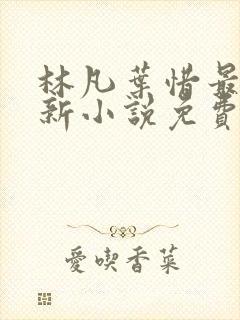 林凡葉惜最
新小說免費
愛喫香菜